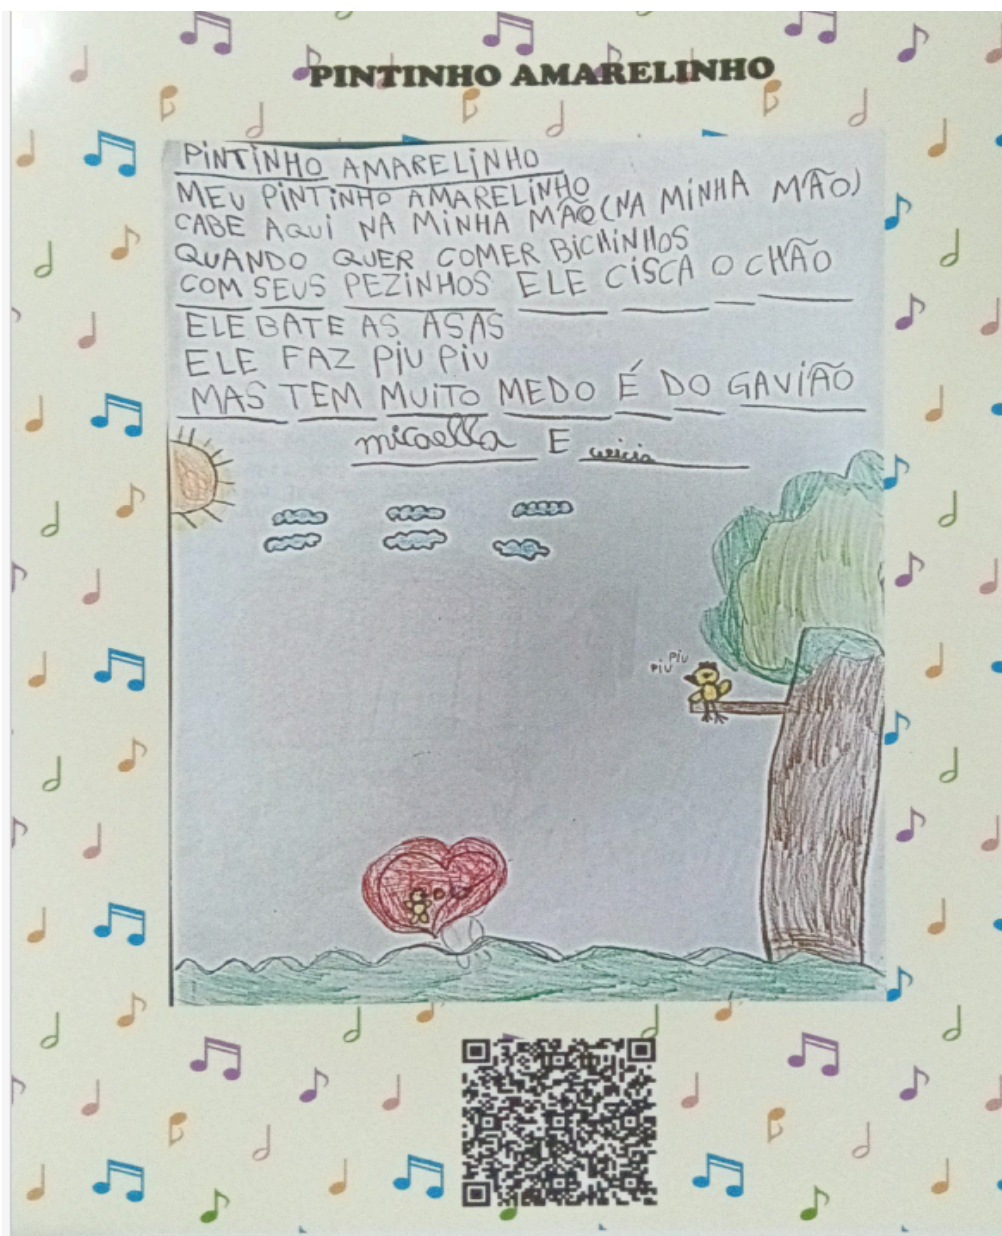 PINTINHO AMARELINHO
PINTINHO AMARELINHO
MEU PINTINHO AMARELINHO
CABE AQUI NA MINHA MÃO (NA MINHA MÃO)
QUANDO QUER COMER BICHINHOS
COM SEUS PEZINHOS ELE CISCA O CHÃO
ELE BATE AS ASAS
ELE FAZ PIU PIU
MAS TEM MUITO MEDO É DO GAVIÃO
micaella E
PIU PIU